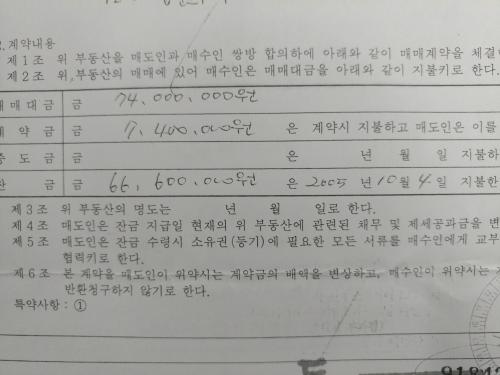 2.계약내용
제1조 위 부동산을 매도인과 매수인 쌍방 합의하에 아래와 같이 매매계약을 체결
제2조 위 부동산의 매매에 있어 매수인은 매매대금을 아래와 같이 지불키로 한다.
매매대금 금 74,000,000원
계약금 금 7,400,000원 은 계약시 지불하고 매도인은 이를
중도금 금 은 년 월 일 지불하
잔금 금 66,600,000원 은 2005년 10월 4일 지불한
제3조 위 부동산의 명도는 년 월 일로 한다.
제4조 매도인은 잔금 지급일 현재의 위 부동산에 관련된 채무 및 제세공과금을 변
제5조 매도인은 잔금 수령시 소유권(등기)에 필요한 모든 서류를 매수인에게 교부
협력키로 한다.
제6조 본 계약을 매도인이 위약시는 계약금의 배액을 변상하고, 매수인이 위약시는
반환청구하지 않기로 한다.
특약사항 : ①